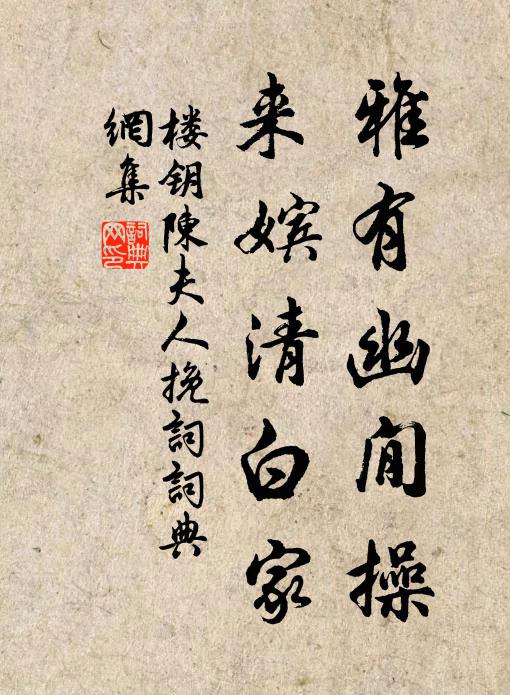 雅有幽閒操
来嬪清白家
楼钥陳夫人挽詞詞典
網集
詞典
网印